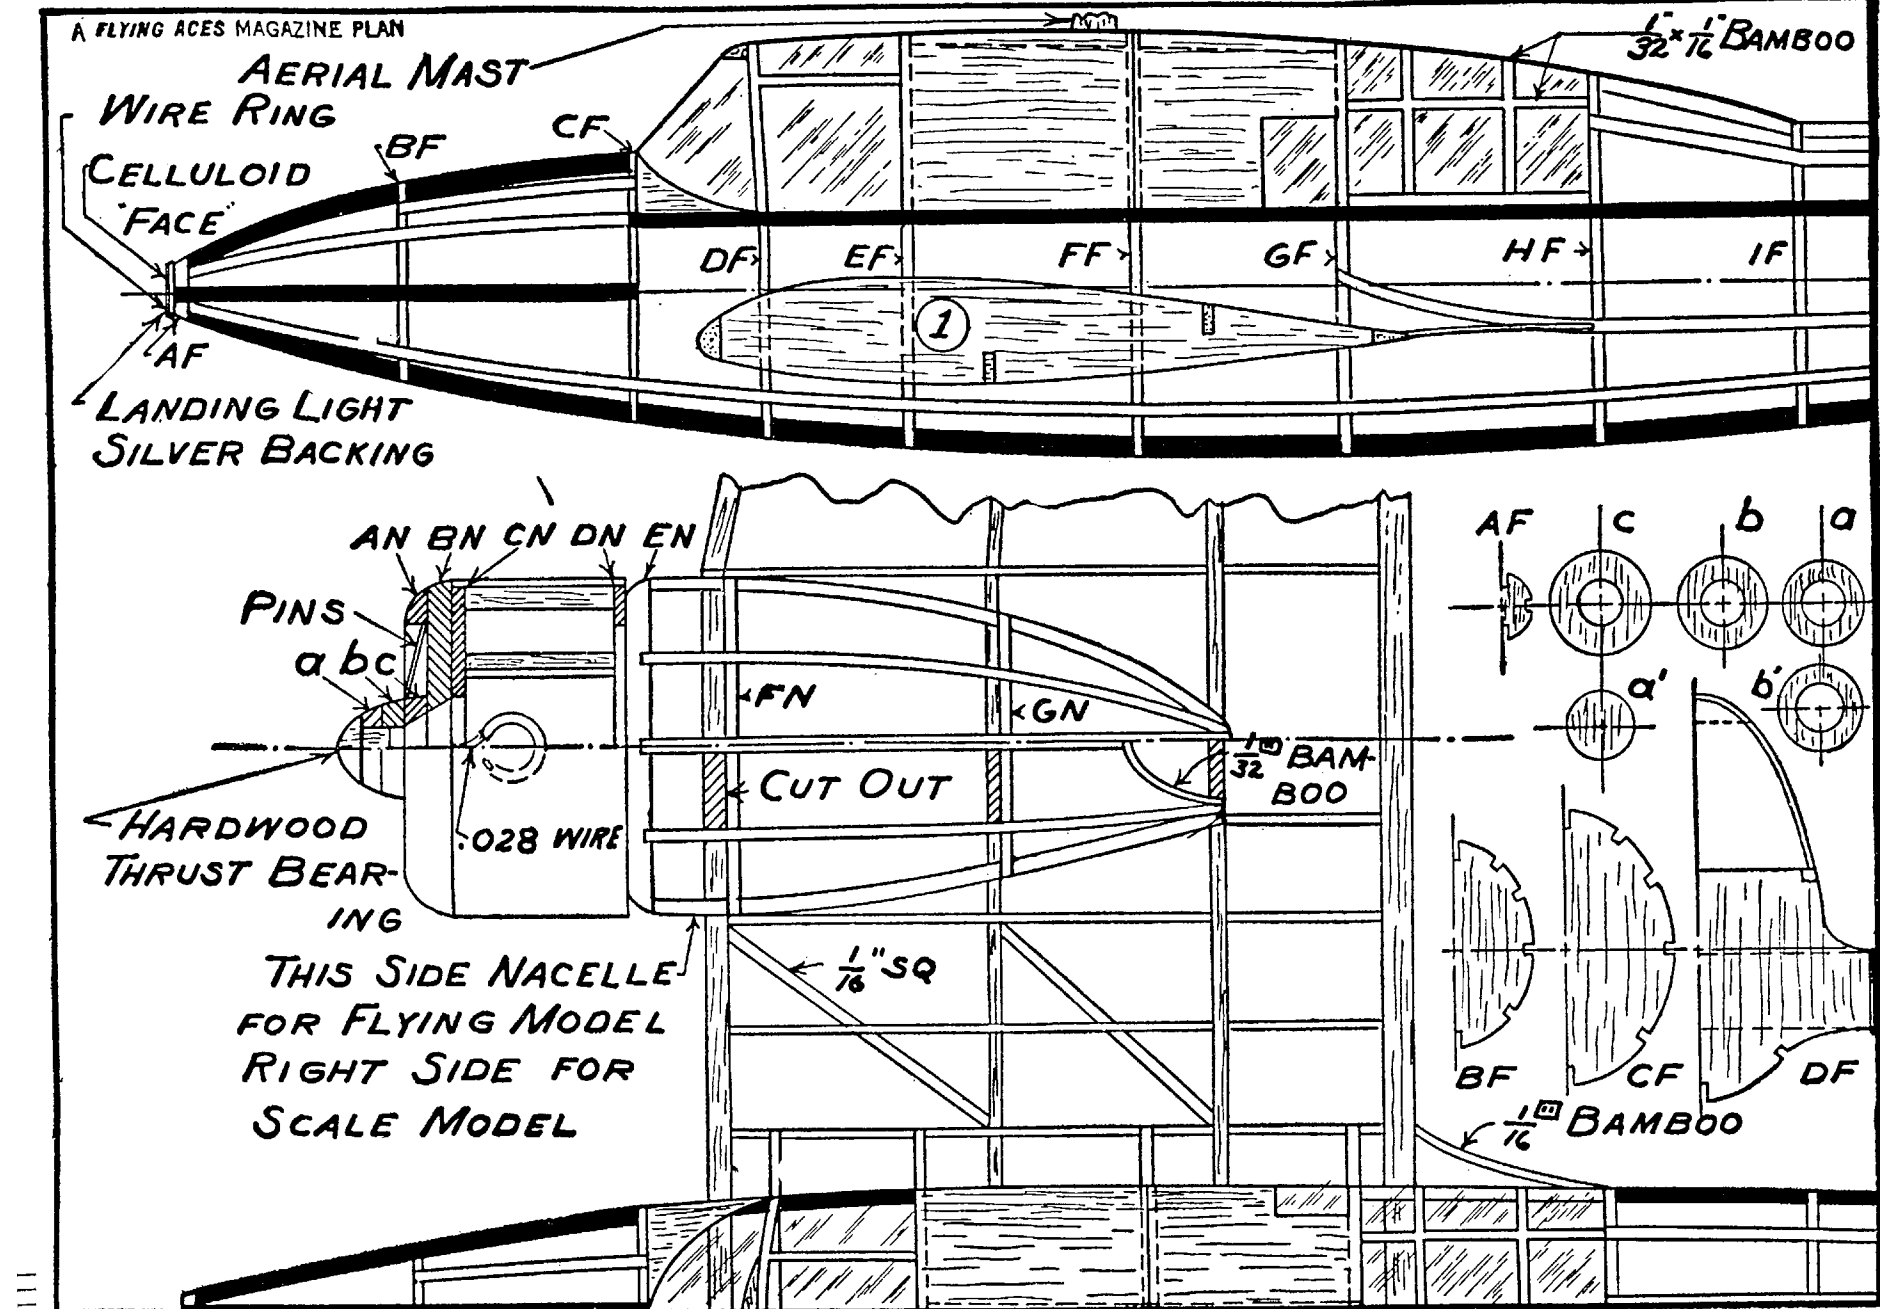 A FLYING ACES MAGAZINE PLAN
AERIAL MAST
1/32" × 1/16" BAMBOO
WIRE RING
CF
BF
CELLULOID
"FACE"
DF
EF
FF
GF
HF
IF
1
AF
LANDING LIGHT
SILVER BACKING
AN BN CN DN EN
AF
c
b
a
PINS
a b c
FN
GN
a'
b'
1/32 □" BAM-
BOO
CUT OUT
HARDWOOD
THRUST BEAR-
ING
.028 WIRE
THIS SIDE NACELLE
FOR FLYING MODEL
RIGHT SIDE FOR
SCALE MODEL
1/16" SQ
BF
CF
DF
1/16 □" BAMBOO